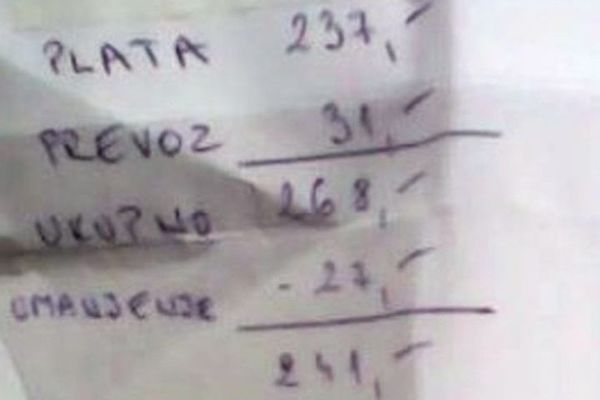 PLATA 237,-
PREVOZ 31,-
UKUPNO 268,-
UMANJENJE - 27,-
241,-